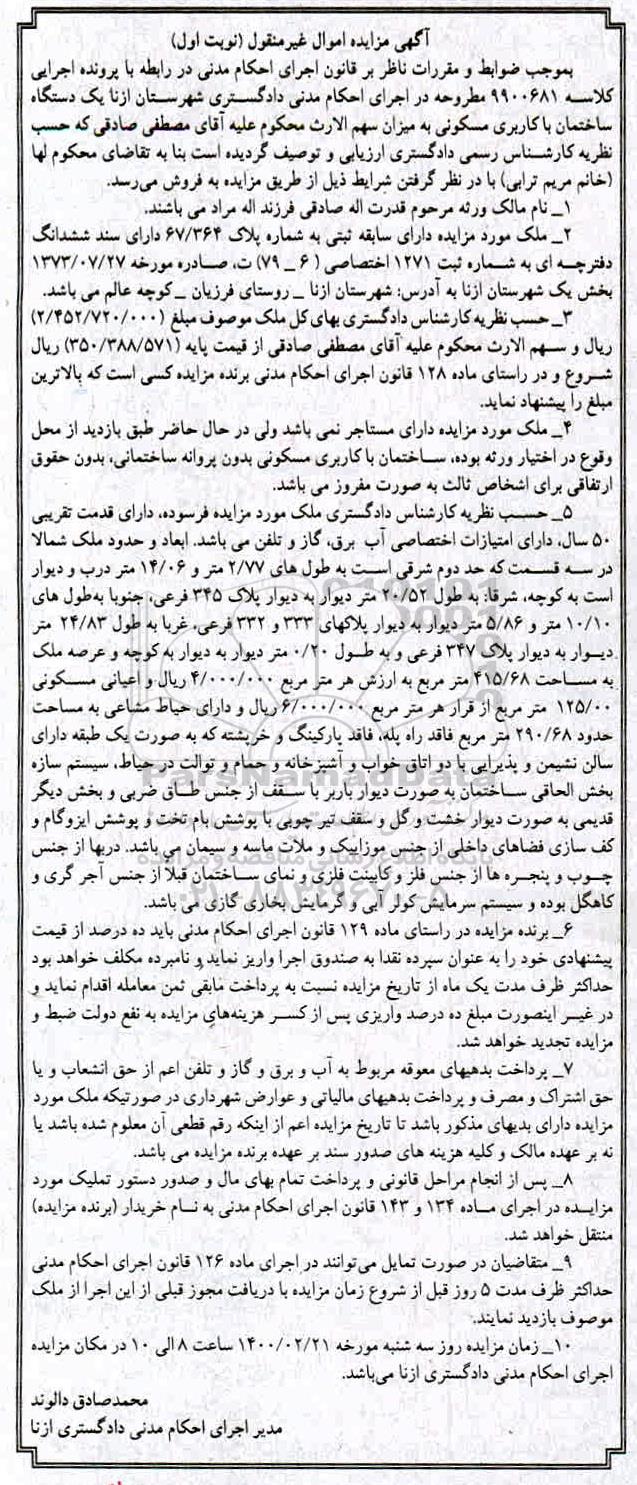 آگهی مزایده اموال غیرمنقول (نوبت اول)
بموجب ضوابط و مقررات ناظر بر قانون اجرای احکام مدنی در رابطه با پرونده اجرایی
کلاسه ۹۹۰۰۶۸۱ مطروحه در اجرای احکام مدنی دادگستری شهرستان ازنا یک دستگاه
ساختمان با کاربری مسکونی به میزان سهم الارث محکوم علیه آقای مصطفی صادقی که حسب
نظریه کارشناس رسمی دادگستری ارزیابی و توصیف گردیده است بنا به تقاضای محکوم لها
(خانم مریم ترابی) با در نظر گرفتن شرایط ذیل از طریق مزایده به فروش می‌رسد.
۱_ نام مالک ورثه مرحوم قدرت اله صادقی فرزند اله مراد می باشند.
۲_ ملک مورد مزایده دارای سابقه ثبتی به شماره پلاک ۶۷/۳۶۴ دارای سند ششدانگ
دفترچه ای به شماره ثبت ۱۲۷۱ اختصاصی (۶ _ ۷۹) ت، صادره مورخه ۱۳۷۳/۰۷/۲۷
بخش یک شهرستان ازنا به آدرس: شهرستان ازنا _ روستای فرزیان _ کوچه عالم می باشد.
۳_ حسب نظریه کارشناس دادگستری بهای کل ملک موصوف مبلغ (۲/۴۵۲/۷۲۰/۰۰۰)
ریال و سهم الارث محکوم علیه آقای مصطفی صادقی از قیمت پایه (۳۵۰/۳۸۸/۵۷۱) ریال
شروع و در راستای ماده ۱۲۸ قانون اجرای احکام مدنی برنده مزایده کسی است که بالاترین
مبلغ را پیشنهاد نماید.
۴_ ملک مورد مزایده دارای مستاجر نمی باشد ولی در حال حاضر طبق بازدید از محل
وقوع در اختیار ورثه بوده، ساختمان با کاربری مسکونی بدون پروانه ساختمانی، بدون حقوق
ارتفاقی برای اشخاص ثالث به صورت مفروز می باشد.
۵_ حسب نظریه کارشناس دادگستری ملک مورد مزایده فرسوده، دارای قدمت تقریبی
۵۰ سال، دارای امتیازات اختصاصی آب برق، گاز و تلفن می باشد. ابعاد و حدود ملک شمالا
در سه قسمت که حد دوم شرقی است به طول های ۲/۷۷ متر و ۱۴/۰۶ متر درب و دیوار
است به کوچه، شرقا: به طول ۲۰/۵۲ متر دیوار به دیوار پلاک ۳۴۵ فرعی، جنوبا به‌طول های
۱۰/۱۰ متر و ۵/۸۶ متر دیوار به دیوار پلاکهای ۳۳۳ و ۳۳۲ فرعی، غربا به طول ۲۴/۸۳ متر
دیوار به دیوار پلاک ۳۴۷ فرعی و به طول ۰/۲۰ متر دیوار به دیوار به کوچه و عرصه ملک
به مساحت ۴۱۵/۶۸ متر مربع به ارزش هر متر مربع ۴/۰۰۰/۰۰۰ ریال و اعیانی مسکونی
۱۲۵/۰۰ متر مربع از قرار هر متر مربع ۶/۰۰۰/۰۰۰ ریال و دارای حیاط مشاعی به مساحت
حدود ۲۹۰/۶۸ متر مربع فاقد راه پله، فاقد پارکینگ و خرپشته که به صورت یک طبقه دارای
سالن نشیمن و پذیرایی با دو اتاق خواب و آشپزخانه و حمام و توالت در حیاط، سیستم سازه
بخش الحاقی ساختمان به صورت دیوار باربر با سقف از جنس طاق ضربی و بخش دیگر
قدیمی به صورت دیوار خشت و گل و سقف تیر چوبی با پوشش بام تخت و پوشش ایزوگام و
کف سازی فضاهای داخلی از جنس موزاییک و ملات ماسه و سیمان می باشد. دربها از جنس
چوب و پنجره ها از جنس فلز و کابینت فلزی و نمای ساختمان قبلا از جنس آجر گری و
کاهگل بوده و سیستم سرمایش کولر آبی و گرمایش بخاری گازی می باشد.
۶_ برنده مزایده در راستای ماده ۱۲۹ قانون اجرای احکام مدنی باید ده درصد از قیمت
پیشنهادی خود را به عنوان سپرده نقدا به صندوق اجرا واریز نماید و نامبرده مکلف خواهد بود
حداکثر ظرف مدت یک ماه از تاریخ مزایده نسبت به پرداخت مابقی ثمن معامله اقدام نماید و
در غیر اینصورت مبلغ ده درصد واریزی پس از کسر هزینه‌های مزایده به نفع دولت ضبط و
مزایده تجدید خواهد شد.
۷_ پرداخت بدهیهای معوقه مربوط به آب و برق و گاز و تلفن اعم از حق انشعاب و یا
حق اشتراک و مصرف و پرداخت بدهیهای مالیاتی و عوارض شهرداری در صورتیکه ملک مورد
مزایده دارای بدیهای مذکور باشد تا تاریخ مزایده اعم از اینکه رقم قطعی آن معلوم شده باشد یا
نه بر عهده مالک و کلیه هزینه های صدور سند بر عهده برنده مزایده می باشد.
۸_ پس از انجام مراحل قانونی و پرداخت تمام بهای مال و صدور دستور تملیک مورد
مزایده در اجرای ماده ۱۳۴ و ۱۴۳ قانون اجرای احکام مدنی به نام خریدار (برنده مزایده)
منتقل خواهد شد.
۹_ متقاضیان در صورت تمایل می‌توانند در اجرای ماده ۱۲۶ قانون اجرای احکام مدنی
حداکثر ظرف مدت ۵ روز قبل از شروع زمان مزایده با دریافت مجوز قبلی از این اجرا از ملک
موصوف بازدید نمایند.
۱۰_ زمان مزایده روز سه شنبه مورخه ۱۴۰۰/۰۲/۲۱ ساعت ۸ الی ۱۰ در مکان مزایده
اجرای احکام مدنی دادگستری ازنا می‌باشد.
محمدصادق دالوند
مدیر اجرای احکام مدنی دادگستری ازنا
ParsNamadData
پایگاه اطلاع رسانی مناقصه و مزایده
۰۲۱-۸۸۳۴۹۶۷۰-۵